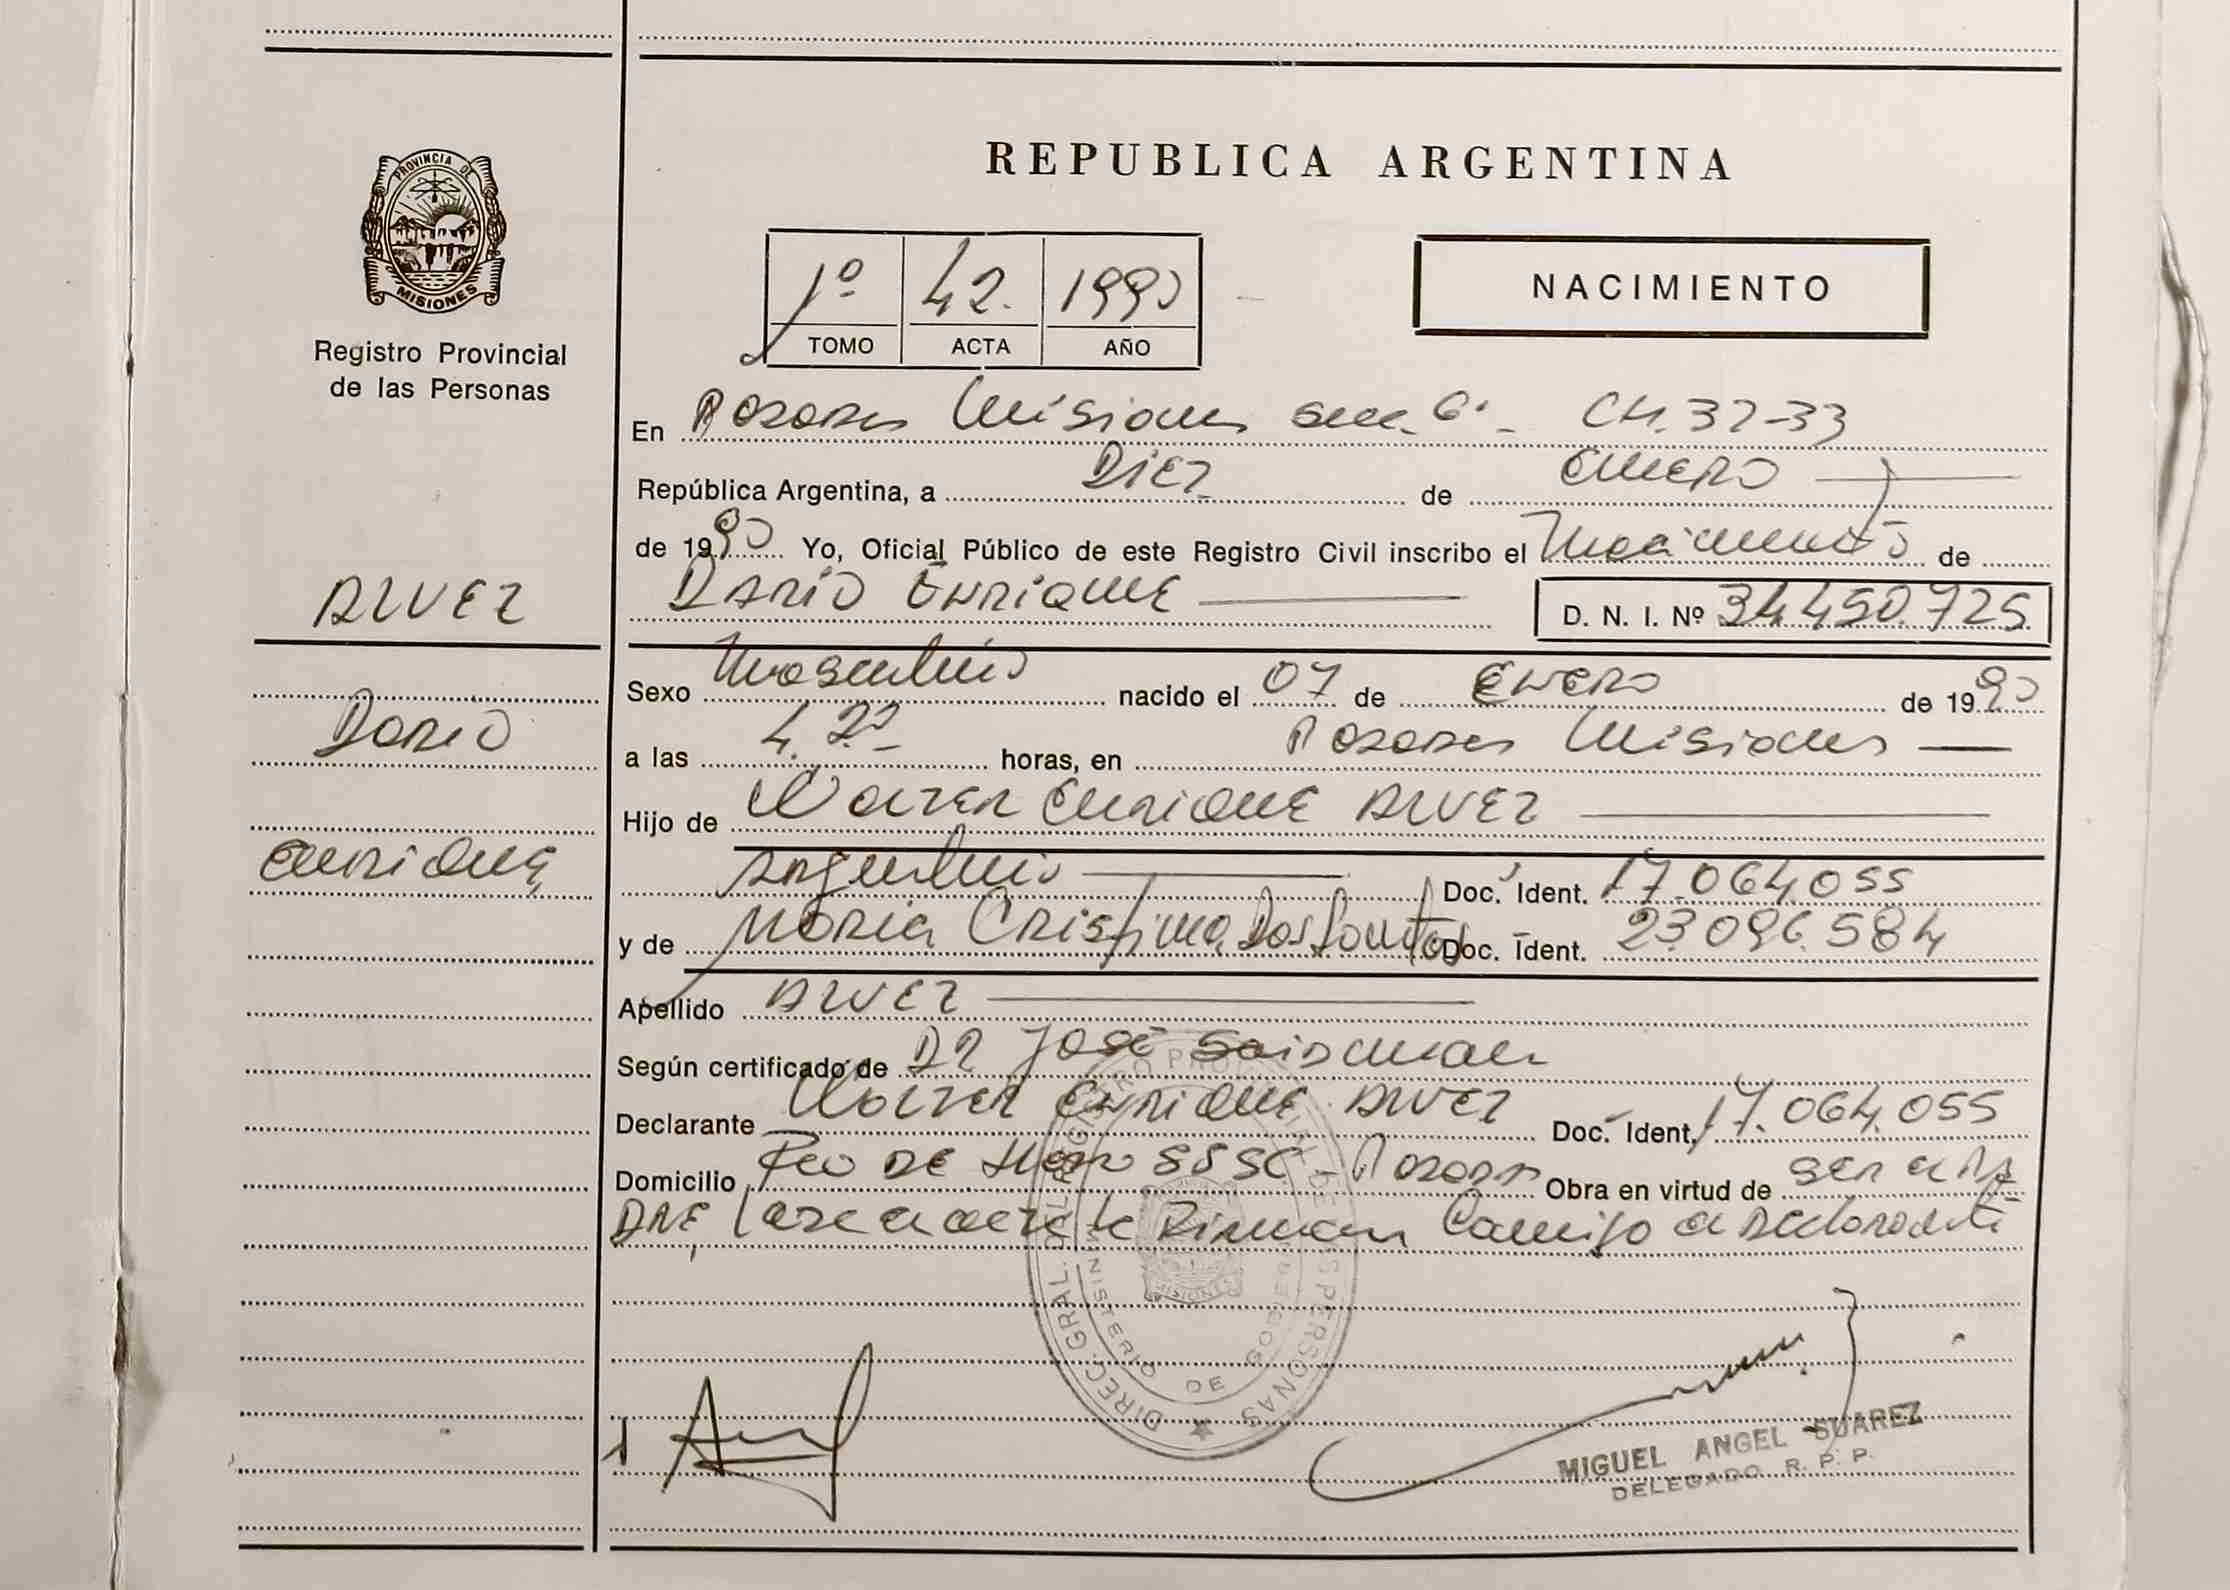 PROVINCIA DE
MISIONES
Registro Provincial
de las Personas
ALVEZ
Dario
Enrique
REPUBLICA ARGENTINA
1º 42. 1990
TOMO ACTA AÑO
NACIMIENTO
En Posadas Misiones secc. 6ª - CH. 32-33
República Argentina, a DIEZ de ENERO
de 1990 Yo, Oficial Público de este Registro Civil inscribo el Nacimiento de
DARIO ENRIQUE D. N. I. Nº 34.450.725
Sexo Masculino nacido el 07 de ENERO de 1990
a las 4. horas, en Posadas Misiones
Hijo de ENRIQUE ALVEZ
Argentino Doc. Ident. 17.064.055
y de MARIA Cristina Dos Santos Doc. Ident. 23.096.584
Apellido ALVEZ
Según certificado de DR José
Declarante ENRIQUE ALVEZ Doc. Ident. 17.064.055
Domicilio DE Posadas Obra en virtud de SER EL PA-
DRE, Firman Conmigo el Declarante
DIRECC. GRAL. DEL REGISTRO PROVINCIAL DE LAS PERSONAS
MINISTERIO DE GOBIERNO
MISIONES
MIGUEL ANGEL SUAREZ
DELEGADO R. P. P.